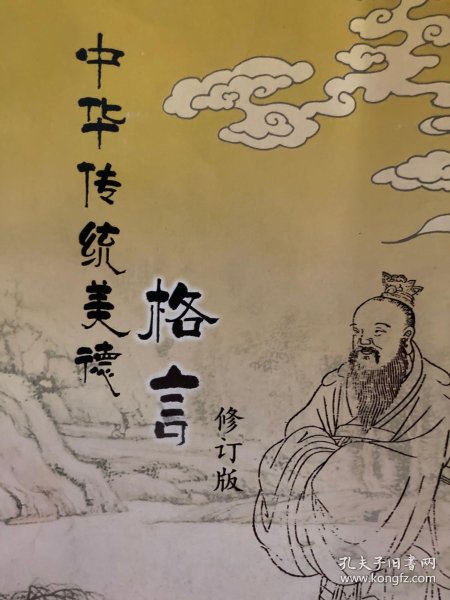 中华传统美德
格言
修订版
孔夫子旧书网
www.kongfz.com